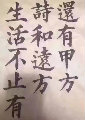 還有甲方
詩和遠方
生活不止有